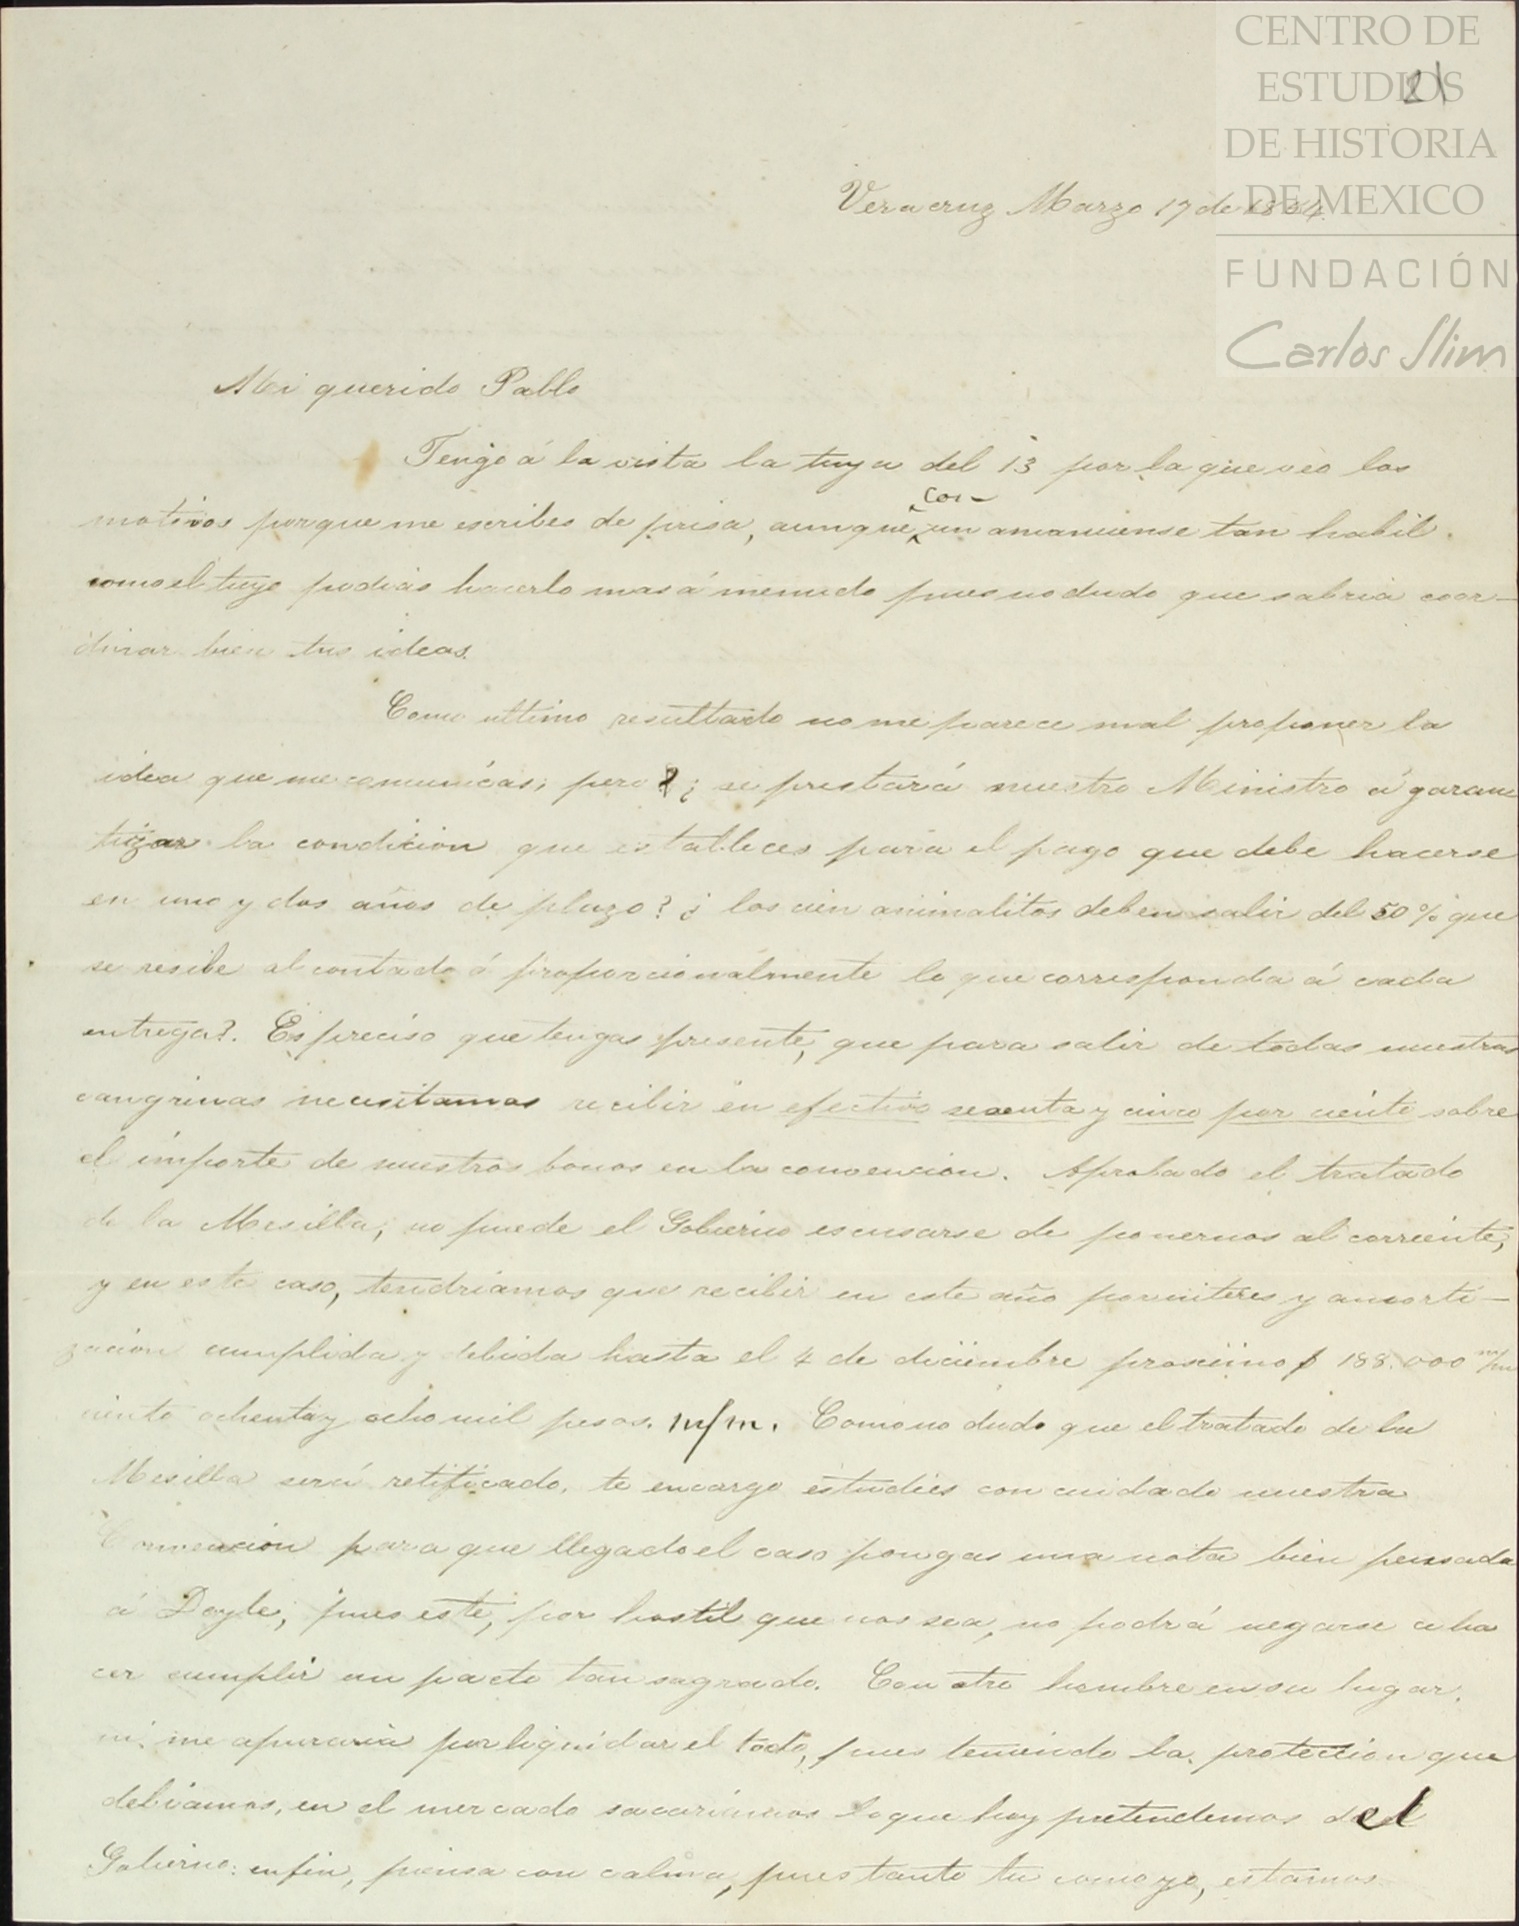 CENTRO DE
ESTUDIOS
21
DE HISTORIA
DE MEXICO
FUNDACIÓN
Carlos Slim
Veracruz Marzo 17 de 1854
Mi querido Pablo
Tengo á la vista la tuya del 13 por la que veo los
motivos porque me escribes de prisa, aunque con un amanuense tan habil
como el tuyo podias hacerlo mas á menudo pues no dudo que sabria coor-
dinar bien tus ideas.
Como ultimo resultado no me parece mal proponer la
idea que me comunicas; pero ¿ se prestará nuestro Ministro á garan
tizar la condicion que estableces para el pago que debe hacerse
en uno y dos años de plazo? ¿ los cien animalitos deben salir del 50 % que
se resibe al contado ó proporcionalmente lo que corresponda á cada
entrega?. Es preciso que tengas presente, que para salir de todas nuestras
cangrinas necesitamos recibir en efectivo sesenta y cinco por ciento sobre
el importe de nuestros bonos en la convencion. Aprobado el tratado
de la Mesilla, no puede el Gobierno escusarse de ponernos al corriente,
y en este caso, tendriamos que recibir en este año por interes y amorti-
zacion cumplida y debida hasta el 4 de diciembre procsimo $ 188.000 m/m
ciento ochenta y ocho mil pesos. m/m. Como no dudo que el tratado de la
Mesilla será retificado, te encargo estudies con cuidado nuestra
Convencion para que llegado el caso pongas una nota bien pensada
á Doyle, pues este, por hostil que nos sea, no podrá negarse a ha
cer cumplir un pacto tan sagrado. Con otro hombre en su lugar,
ni me apuraria por liquidar el todo, pues teniendo la proteccion que
debiamos, en el mercado sacariamos lo que hoy pretendemos del
Gobierno: en fin, piensa con calma, pues tanto tu como yo, estamos